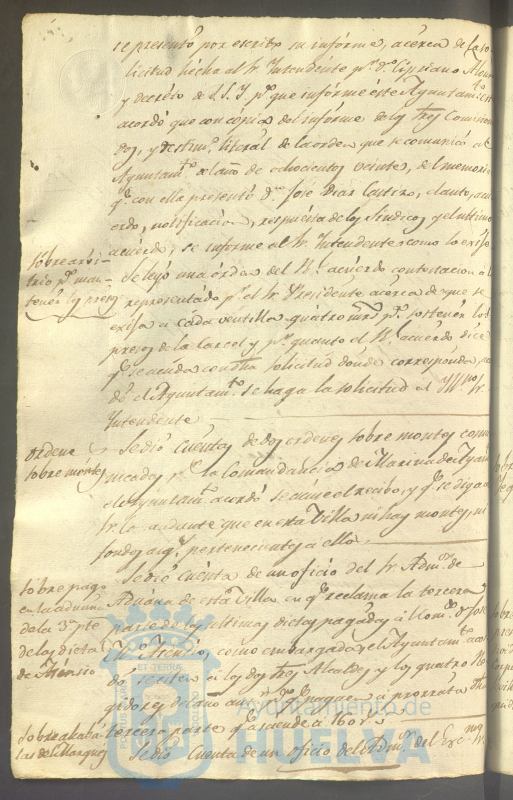 se presentó por escrito su informe, acerca de la so-
licitud hecha al Sr. Intendente pr. Dn. Cypriano
y decreto de S.S.Y. pa. que informe este Ayuntamto.
acordó que con copia del informe de los tres Comision
dos, y testimo. literal de la orden que se comunicó al
Ayuntamto. el año de ochocientos veinte, del memoria
qe. con ella presentó Dn. José Diaz Castizo, el auto, acu
erdo, notificacion, respuesta de los Sindicos, y el ultimo
acuerdo, se informe al Sr. Intendente como lo exije.
Sobre arvi-
trio pa. man-
tener los presos
Se leyó una orden del Rl. acuerdo contestacion a lo
representado pr. el Sr. Presidente acerca de que se
exija a cada ventilla quatro mrs. pa. sostener los
presos de la Carcel y pr. quanto el Rl. acuerdo dice
qe. se acuda con dha. solicitud donde corresponda,
el Ayuntamto. se haga la solicitud al Sr.
Intendente
Ordenes
sobre montes
Se dió cuenta de dos ordenes sobre montes comu
nicadas pr. la Comandancia de Marina de
el Ayuntamto. acordó se acuse el recibo, y qe. se diga a
Sr. Comandante que en esta Villa ni hay montes, ni
fondos algs. pertenecientes a ellos.
Sobre pago
en la aduana
de la 3a. pte.
de las dietas
de Asensio
Se dió cuenta de un oficio del Sr. Admor. de
Aduana de esta Villa en qe. reclama la tercera
parte de las ultimas dietas pagadas á
Asensio, como embargado, el Ayuntamto. acor
do se cite a los dos tres Alcaldes y los quatro Re
gidores del año para qe. paguen a prorrata dha.
tercera parte qe. asciende á 160 rs.
Sobre alcaba-
las del Marques
Se dió cuenta de un oficio del Admor. del Exmo. Sr.
Ayuntamiento de
HUELVA
PORTUS MARIS
ET TERRAE
CUSTODIA